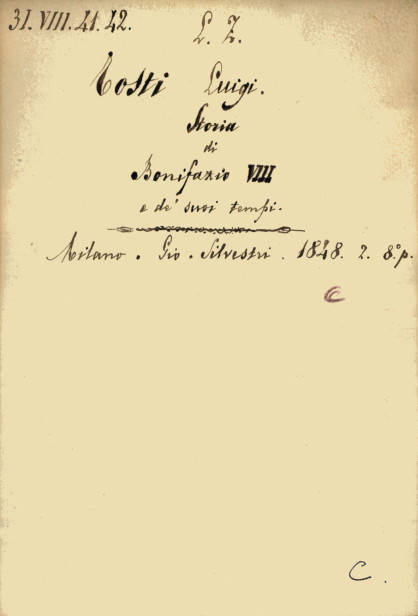 31. VIII. 41. 42.
L. Z.
Tosti Luigi.
Storia
di
Bonifazio VIII
e de' suoi tempi.
Milano. Gio. Silvestri. 1848. 2. 8.° p.
C
C.